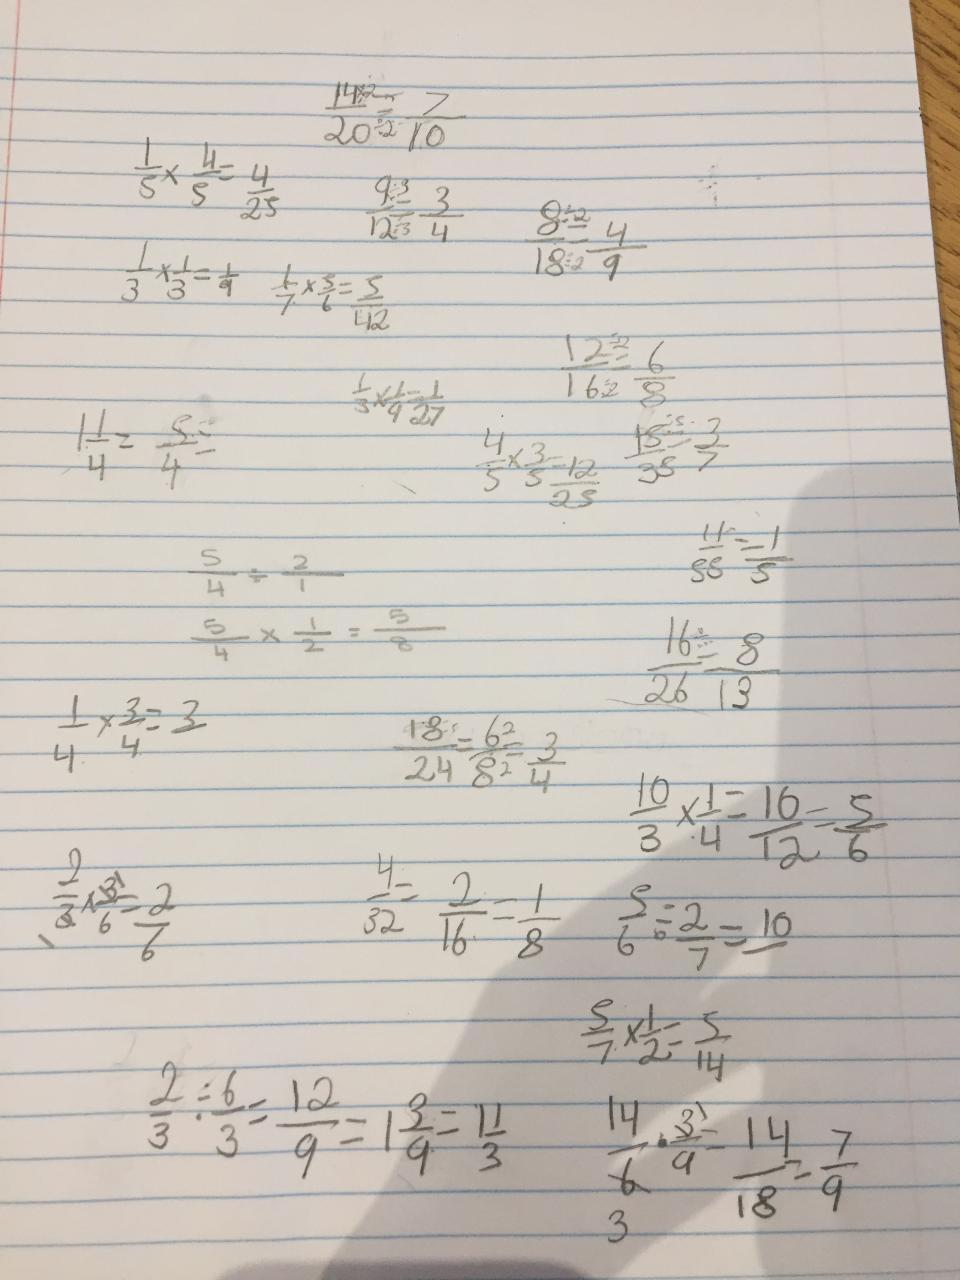 14÷2/20÷2 = 7/10
1/5 × 4/5 = 4/25
9÷3/12÷3 = 3/4
8÷2/18÷2 = 4/9
1/3 × 1/3 = 1/9
1/7 × 5/6 = 5/42
12÷2/16÷2 = 6/8
1/3 × 1/9 = 1/27
1 1/4 = 5/4 ÷
4/5 × 3/5 = 12/25
15÷5/35 = 3/7
11/55 = 1/5
5/4 ÷ 2/1
5/4 × 1/2 = 5/8
16÷/26 = 8/13
1/4 × 3/4 = 3
18/24 = 6 2/8 2 = 3/4
10/3 × 1/4 = 10/12 = 5/6
2/3 × 3 1/6 = 2/6
4/32 = 2/16 = 1/8
5/6 ÷ 2/7 = 10
5/7 × 1/2 = 5/14
2/3 ÷ 6/3 = 12/9 = 1 3/9 = 1 1/3
14/6 · 3 1/9 = 14/18 = 7/9
3